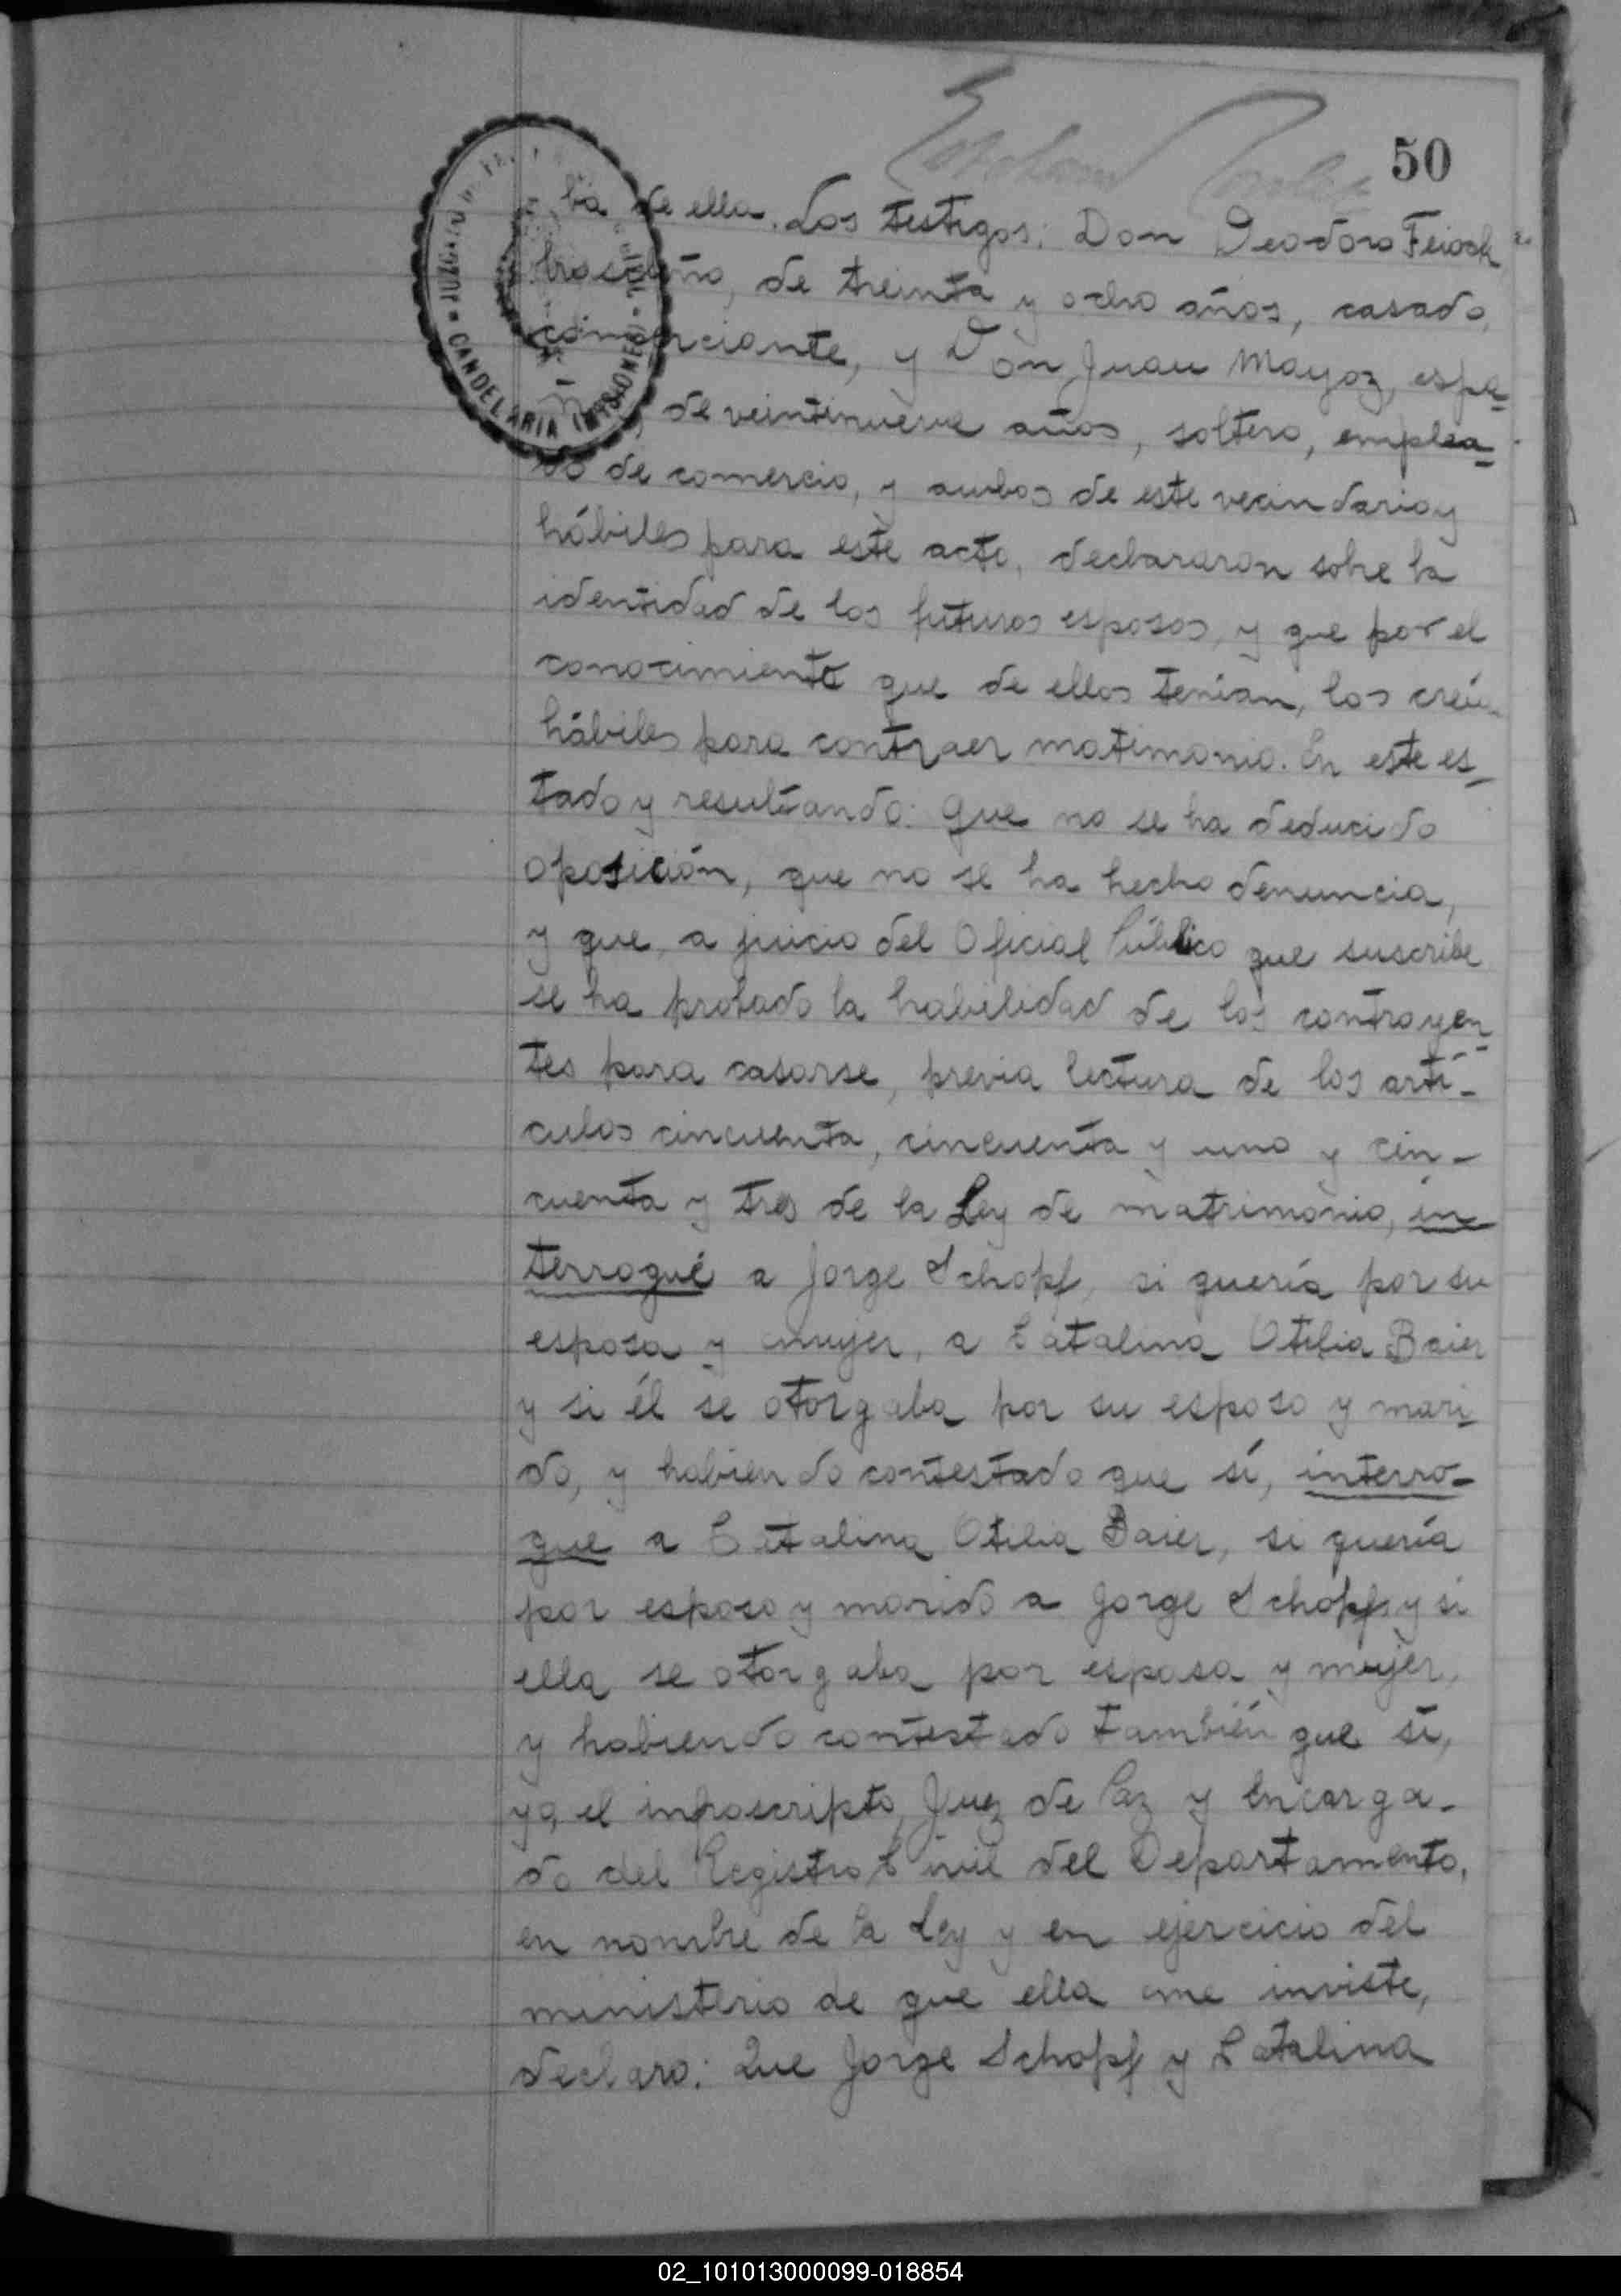 50
ba de ella. Los testigos: Don Deodoro
brasileño, de treinta y ocho años, casado,
comerciante, y Don Juan Mayoz, espa-
ñ , de veintinueve años, soltero, emplea-
do de comercio, y ambos de este vecindario y
hábiles para este acto, declararon sobre la
identidad de los futuros esposos, y que por el
conocimiento que de ellos tenían, los creían
hábiles para contraer matimonio. En este es-
tado y resultando: Que no se ha deducido
oposición, que no se ha hecho denuncia,
y que, a juicio del Oficial Público que suscribe
se ha probado la habilidad de los contrayen-
tes para casarse, previa lectura de los artí-
culos cincuenta, cincuenta y uno y cin-
cuenta y tres de la Ley de matrimonio, in-
terrogué a Jorge Schopf, si quería por su
esposa y mujer, a Catalina Otilia Baier
y si él se otorgaba por su esposo y mari-
do, y habiendo contestado que sí, interro-
gue a Catalina Otilia Baier, si quería
por esposo y marido a Jorge Schopf, y si
ella se otorgaba por esposa y mujer,
y habiendo contestado también que sí,
yo, el infrascripto, Juez de Paz y Encarga-
do del Registro Civil del Departamento,
en nombre de la Ley y en ejercicio del
ministerio de que ella me inviste,
declaro: Que Jorge Schopf y Catalina
JUZGADO DE PAZ
CANDELARIA (MISIONES)
02_101013000099-018854